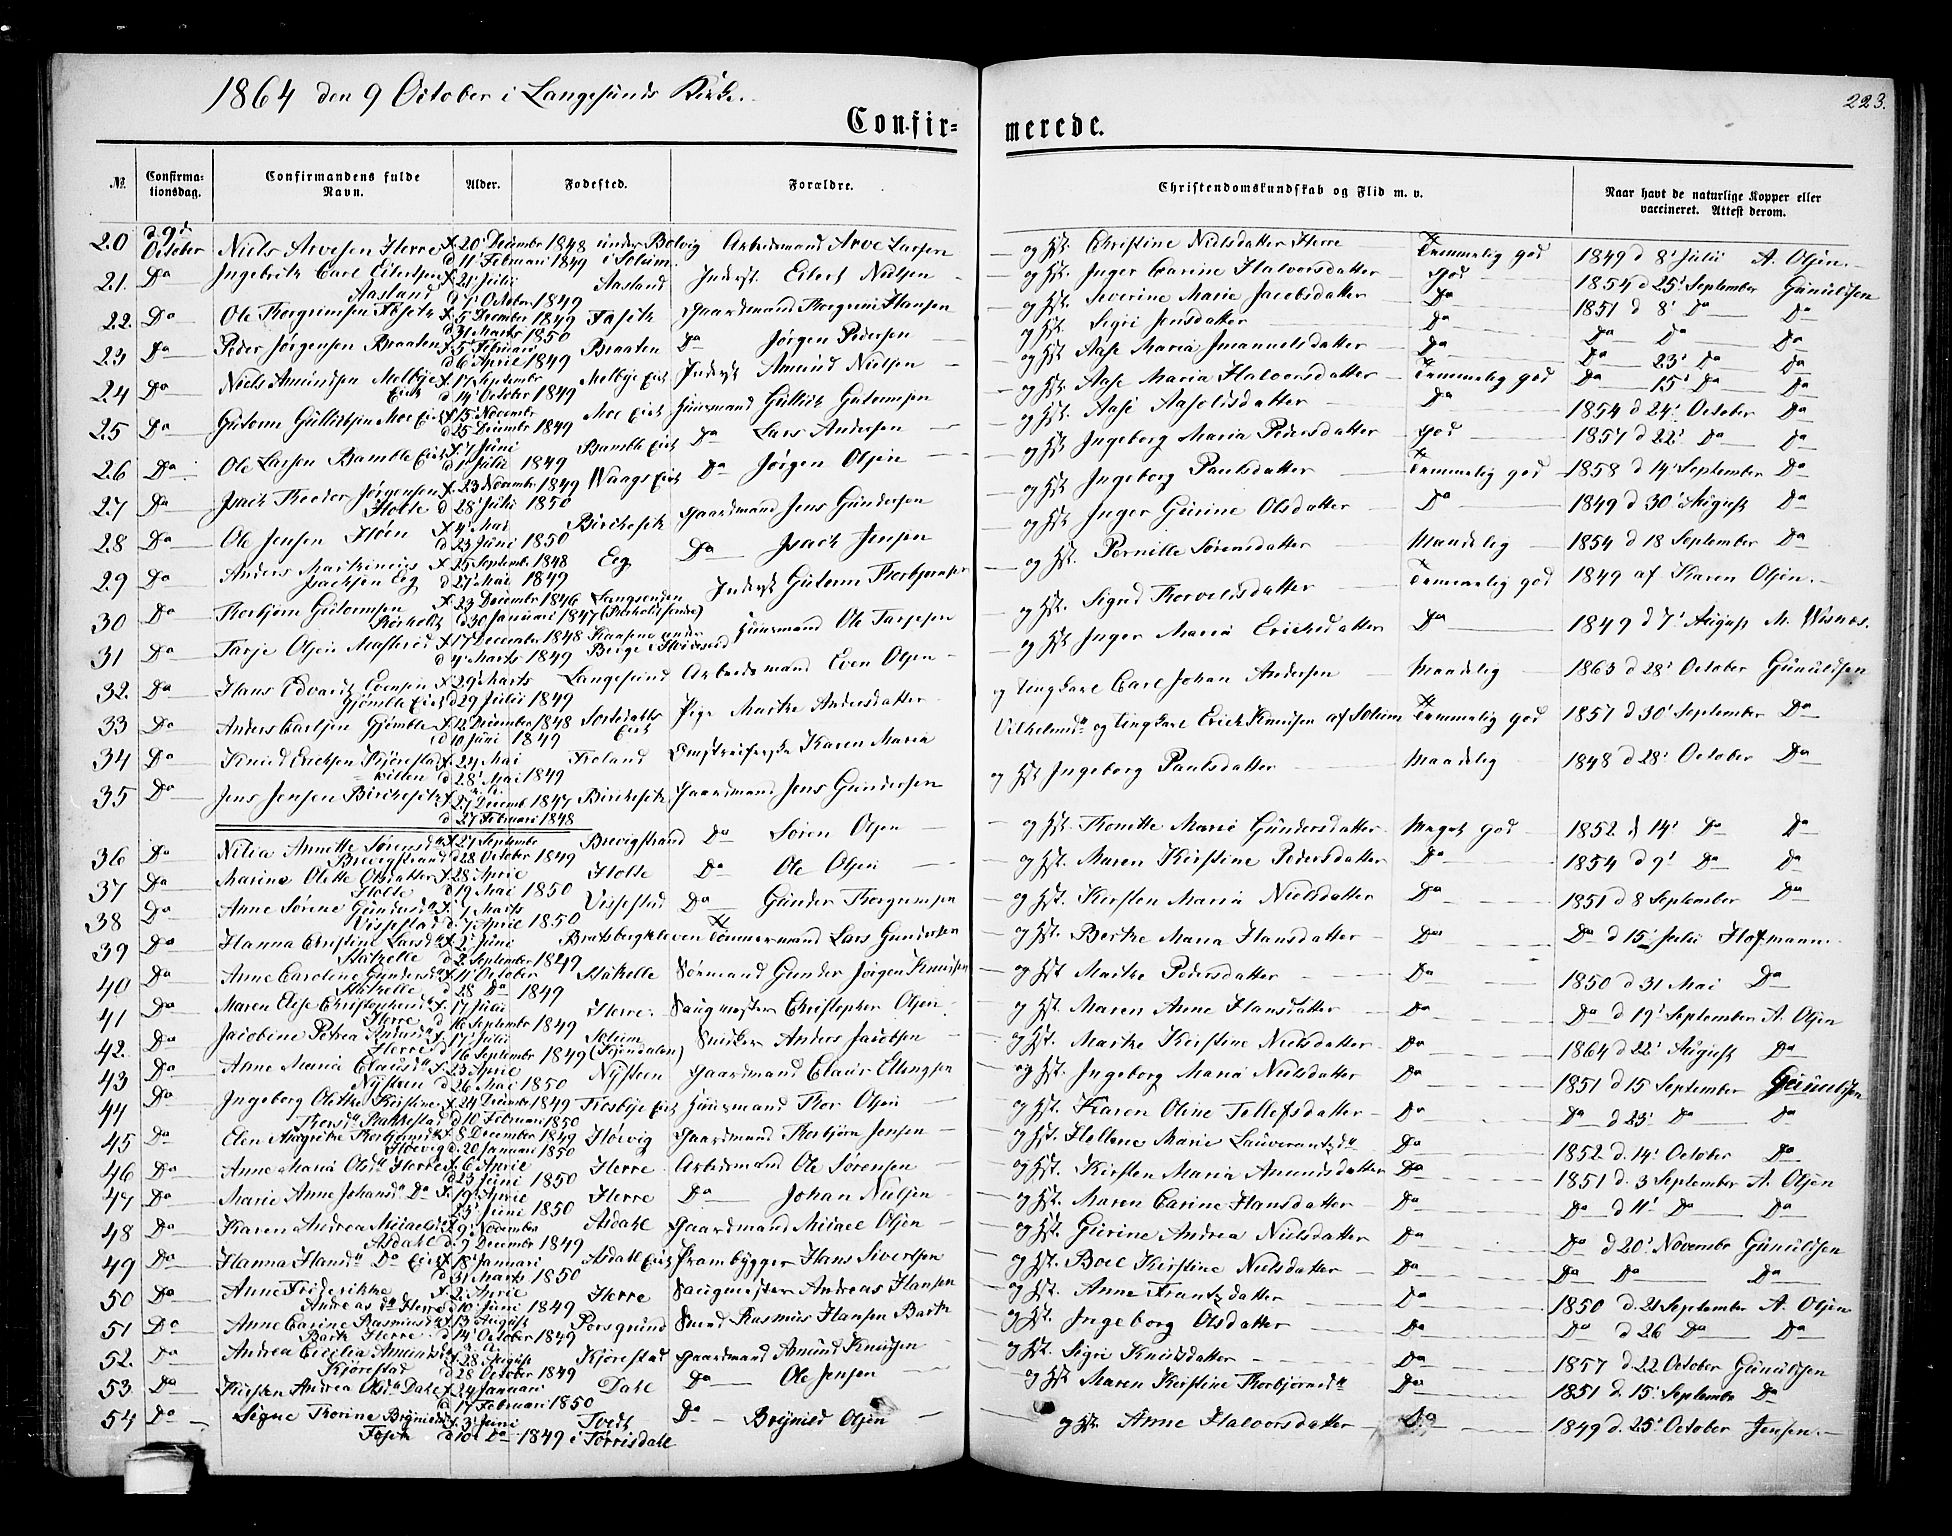 1864 den 9 October i Langesunds Kirke.
223.
Confir=
merede.
№ Confirma-tionsdag. Confirmandens fulde Navn. Alder. Fødested. Forældre. Christendomskundskab og Flid m. v. Naar havt de naturlige Kopper eller vaccineret. Attest derom.
20 d. 9de October Niels Arvesen Herre f. 20 December 1848 d. 11 Februari 1849 under Bolvig i Solum Arbeidsmand Arve Larsen og Hst. Christine Nielsdatter Herre Temmelig god 1849 d 8 Julii A. Olsen.
21. Do Ingebrikt Carl Eilertsen Aasland f. 21 Julii d 7 October 1849 Aasland Inderst Eilert Nielsen og Hst. Inger Carine Halvorsdatter god 1854 d 25 September Gunuldsen
22. Do Ole Thorgrimsen Fosite f. 5 December 1849 d 31 Marts 1850 Fosite Gaardmand Thorgrim Hansen og Hst. Severine Marie Jacobsdatter Do 1851 d 8 Do Do
23 Do Peder Jørgensen Braaten f. 5 Februari d 6 April 1849 Braaten Do Jørgen Pedersen og Hst. Sigri Jensdatter Do Do Do Do
24 Do Niels Amundsen Melbye Eie f. 17 September d 14 October 1849 Melbye Eie Inderst Amund Nielsen og Hst. Aase Maria Imanuelsdatter Do Do 23 Do Do
25 Do Gutorm Gullichsen Moe Eie f. 15 November d 25 December 1849 Moe Eie Huusmand Gullich Gutormsen og Hst. Aase Maria Halvorsdatter Temmelig god Do 15 Do Do
26 Do Ole Larsen Bamble Eie f. 7 Juni d 1 Julii 1849 Bamble Eie Do Lars Andersen og Hst. Aase Aaselisdatter Do 1854 d 24 October Do
27 Do Isach Theodor Jørgensen Holte f. 23 November 1849 d 28 Julii 1850 Waags Eie Do Jørgen Olsen og Hst. Ingeborg Maria Pedersdatter god 1857 d 22 Do Do
28 Do Ole Jensen Høen f. 4 Mai d 23 Juni 1850 Birkesete Gaardmand Jens Gundersen og Hst. Ingeborg Paulsdatter Temmelig god 1858 d 14 September Do
29 Do Anders Martinius Isachsen Eeg f. 25 September 1848 d 27 Mai 1849 Eeg Do Isach Jensen og Hst. Inger Gurine Olsdatter Do 1849 d 30 August Do
30 Do Thorbjørn Gutormsen Rørholt f. 23 December 1846 d 30 Januari 1847 Langsenden Inderst Gutorm Thorbjørnsen og Hst. Pernille Sørensdatter Maadelig 1854 d 18 September Do
31 Do Tarje Olsen f. 17 December 1848 d 4 Marts 1849 Huusmand Ole Tarjesen og Hst. Sigrid Thorvelisdatter Temmelig god 1849 af Karen Olsen.
32. Do Hans Edvard Evensen Gjømble Eie f. 29 Marts d 29 Julii 1849 Langesund Arbeidsmand Even Olsen og Hst. Inger Maria Ericksdatter Do 1849 d 7 August M. Wisnes.
33 Do Anders Carlsen Gjømble f. 12 December 1848 d 10 Juni 1849 Eie Pige Marthe Andersdatter og Ungkarl Carl Johan Andersen Maadelig 1863 d 28 October Gunuldsen
34 Do Knud Ericksen Kjørestad f. 24 Mai d 28 Mai 1849 Froland Omstreiferske Karen Maria Vilhelmsdr og Ungkarl Erick Knudsen af Solum Temmelig god 1857 d 30 September Do
35 Do Jens Jensen Birkesete f. 27 Decemb 1847 d 27 Februari 1848 Birkesete Gaardmand Jens Gundersen og Hst Ingeborg Paulsdatter Maadelig 1848 d 28 October Do
36 Do Nilia Annette Sørensdr Brevigstrand f. 27 September d 28 October 1849 Brevigstrand Do Søren Olsen og Hst. Thonette Maria Gundersdatter Meget god 1852 d 14 Do Do
37 Do Marine Olette Olsdatter Holte f. 28 April d 19 Mai 1850 Holte Do Ole Olsen og Hst. Maren Kirstine Pedersdatter Do 1854 d 9 Do Do
38 Do Anne Sørine Gundersdr Vissestad f. 1 Marts d. 7 April 1850 Vissestad Do Gunder Thorgrimsen og Hst. Kirsten Maria Nielsdatter Do 1851 d 8 September Do
39 Do Hanna Christine Larsdr Stathelle f. 2 Juni d 2 September 1849 Bratsbergkleven Tømmermand Lars Gundersen og Hst. Berthe Maria Hansdatter Do Do d 15 Julii Hofmann.
40 Do Anne Caroline Gundersdr Stathelle f. 11 October d 28 Do 1849 Stathelle Sømand Gunder Jørgen Knudsen og Hst Marthe Pedersdatter Do 1850 d 31 Mai Do
41 Do Maren Elise Christophersdr Herre f. 17 Julii d 16 September 1849 Herre Saugmester Christopher Olsen og Hst. Maren Anne Hansdatter Do Do d 19 September A. Olsen
42. Do Jacobine Petrea Andersdr Herre f. 17 Julii d 16 September 1849 Solum Snedker Anders Jacobsen og Hst. Marthe Kirstine Nielsdatter Do 1864 d 22 August Do
43 Do Anne Maria Clausdr Nysteen f. 23 April d 26 Mai 1850 Nysteen Gaardmand Claus Ellingsen og Hst. Ingeborg Maria Nielsdatter Do 1851 d 15 September Gunuldsen
44 Do Ingeborg Olette Kirstine Thorsdr Rakkestad f. 24 December 1849 d 10 Februari 1850 Trosbye Eie Huusmand Thor Olsen og Hst. Karen Oline Tollefsdatter Do Do d 23 Do Do
45 Do Elen Magrethe Thorbjørnsdr Høevig f. 8 December 1849 d. 20 Januari 1850 Høevig Gaardmand Thorbjørn Jensen og Hst. Hellene Marie Lauverantzdr Do 1852 d. 14 October Do
46 Do Anne Maria Olsdr Herre f. 6 April d 23 Juni 1850 Herre Arbeidsmand Ole Sørensen og Hst. Kirsten Maria Amundsdatter Do 1851 d. 3 September A. Olsen
47 Do Marie Anne Johansdr Do f. 19 April 23 Juni 1850 Herre Do Johan Nielsen og Hst. Maren Carine Hansdatter Do Do d 11 Do Do
48 Do Karen Andrea Micaelsdr Asdahl f. 9 November d. 9 December 1849 Asdahl Gaardmand Micael Olsen og Hst. Gurine Andrea Nielsdatter Do Do d 20 Novembr Gunuldsen
49 Do Hanna Hansdr Do Eie f. 18 Januari d 31 Marts 1850 Asdahl Eie Prambygger Hans Sivertsen og Hst. Boel Kirstine Nielsdatter Do Do Do Do
50 Do Anne Friderikke Andreasdr Herre f. 2 April d 10 Juni 1849 Herre Saugmester Andreas Hansen og Hst. Anne Frantzdatter Do 1850 d. 21 September A. Olsen
51 Do Anne Carine Rasmusdr Barth Herre f. 13 August d 14 October 1849 Porsgrund Smed Rasmus Hansen Barth og Hst. Ingeborg Olsdatter Do Do d 26 Do Do
52. Do Andrea Cecilia Amundsdr Kjørestad f. 28 August d 28 October 1849 Kjørestad Gaardmand Amund Knudsen og Hst. Sigri Knudsdatter Do 1857 d 22 October Gunuldsen
53 Do Kirsten Andrea Olsdr Dahl f. 24 Januari d 17 Februari 1850 Dahl Do Ole Jensen og Hst Maren Kirstine Thorbjørnsdr Do 1851 d. 15 September Do
54 Do Signe Thorine Brynildsdr Fosen f. 3 Juni d 10 Do 1849 Tvedt i Torrisdahl Do Brynild Olsen og Hst. Anne Halvorsdatter Do 1849 d. 25 October Jensen.